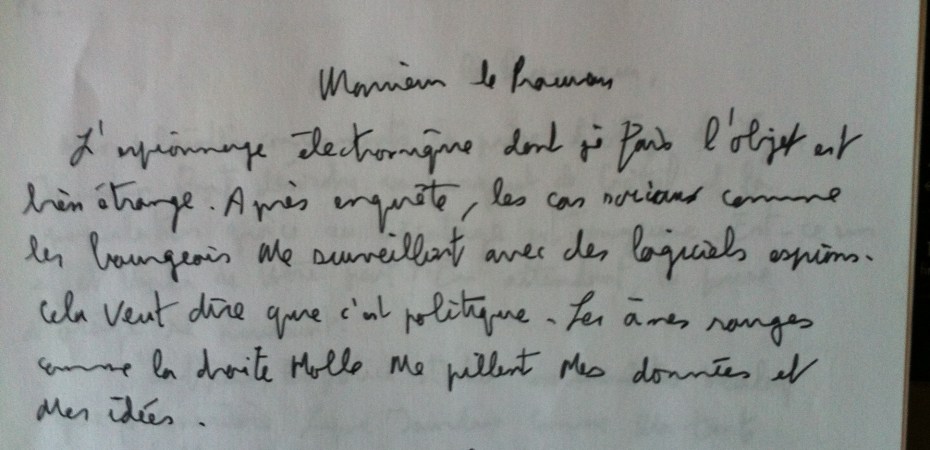 Monsieur le
L'espionnage électronique dont je fais l'objet est
bien étrange. Après enquête, les cas sociaux comme
les bourgeois me surveillent avec des logiciels espions.
Cela veut dire que c'est politique. Les âmes rouges
comme la droite molle me pillent mes données et
mes idées.